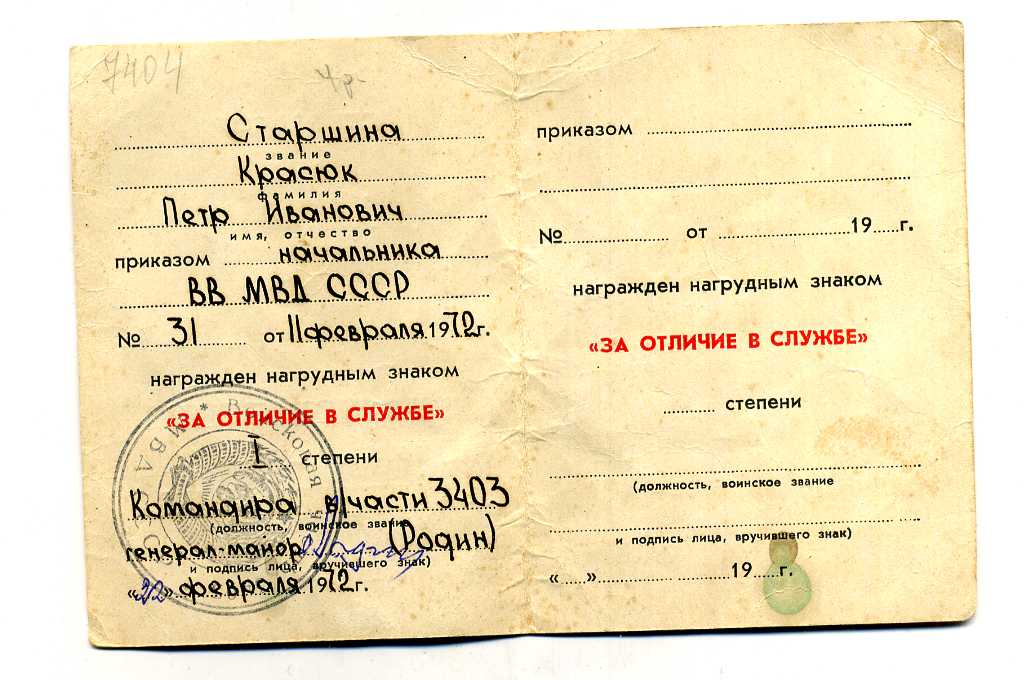 7404
Старшина
звание
Красюк
фамилия
Петр Иванович
имя, отчество
приказом начальника
ВВ МВД СССР
№ 31 от 11 февраля 1972 г.
награжден нагрудным знаком
«ЗА ОТЛИЧИЕ В СЛУЖБЕ»
I степени
Командира в/части 3403
(должность, воинское звание
генерал-майор (Родин)
и подпись лица, вручившего знак)
«22» февраля 1972 г.
приказом
№ от 19 г.
награжден нагрудным знаком
«ЗА ОТЛИЧИЕ В СЛУЖБЕ»
степени
(должность, воинское звание
и подпись лица, вручившего знак)
« » 19 г.